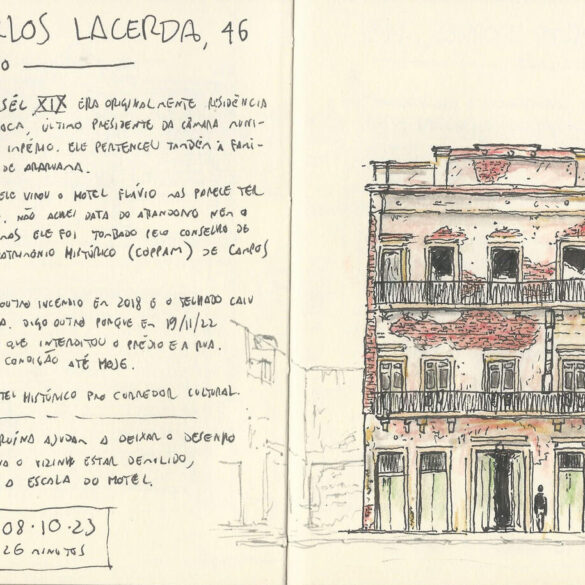 RLOS LACERDA, 46
O
SÉC XIX ERA ORIGINALMENTE RESIDÊNCIA
ÚLTIMO PRESIDENTE DA CÂMARA MUNI-
IMPÉRIO. ELE PERTENCEU TAMBÉM À FAMÍ-
DE ARARUAMA.
ELE VIROU O HOTEL FLÁVIO MAS PARECE TER
NÃO ACHEI DATA DO ABANDONO NEM O
MAS ELE FOI TOMBADO PELO CONSELHO DE
PATRIMÔNIO HISTÓRICO (COPPAM) DE CAMPOS
OUTRO INCENDIO EM 2018 E O TELHADO CAIU
DIGO OUTRO PORQUE EM 19/11/22
QUE INTERDITOU O PRÉDIO E A RUA.
CONDIÇÃO ATÉ HOJE.
TEL HISTÓRICO PRO CORREDOR CULTURAL.
RUÍNA AJUDAM A DEIXAR O DESENHO
O VIZINHO ESTAR DEMOLIDO,
A ESCALA DO HOTEL.
08.10.23
26 MINUTOS